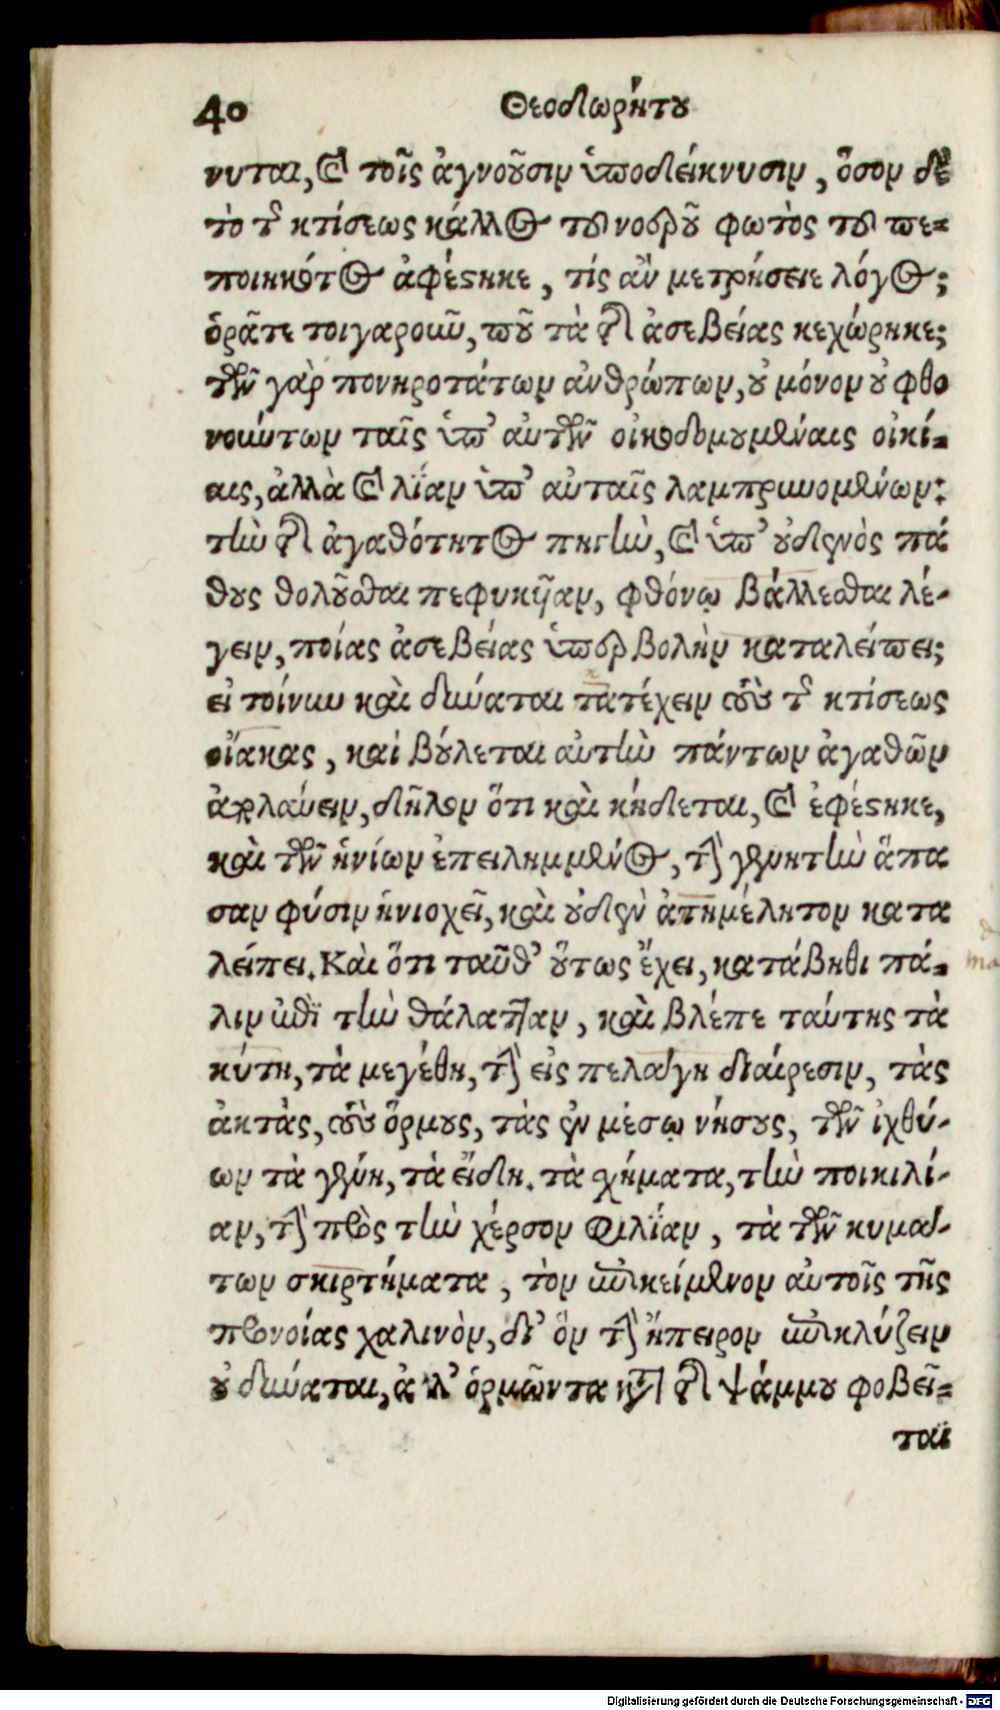 40 Θεοδωρήτου
νυται, καὶ τοῖς ἀγνοοῦσιν ὑποδείκνυσιν, ὅσον δὲ
τὸ τῆς κτίσεως κάλλος τοῦ νοεροῦ φωτὸς τοῦ πε-
ποιηκότος ἀφέστηκε, τίς ἂν μετρήσειε λόγος;
ὁρᾶτε τοιγαροῦν, ποῦ τὰ τῆς ἀσεβείας κεχώρηκε;
τῶν γὰρ πονηροτάτων ἀνθρώπων, οὐ μόνον οὐ φθο
νούντων ταῖς ὑπ' αὐτῶν οἰκοδομουμέναις οἰκί-
αις, ἀλλὰ καὶ λίαν ἐπ' αὐταῖς λαμπρυνομένων:
τὴν τῆς ἀγαθότητος πηγὴν, καὶ ὑπ' οὐδενὸς πά
θους θολοῦσθαι πεφυκῦιαν, φθόνῳ βάλλεσθαι λέ-
γειν, ποίας ἀσεβείας ὑπερβολὴν καταλείπει;
εἰ τοίνυν καὶ δύναται κατέχειν τοὺς τῆς κτίσεως
οἴακας, καὶ βούλεται αὐτὴν πάντων ἀγαθῶν
ἀπολαύειν, δῆλον ὅτι καὶ κήδεται, καὶ ἐφέστηκε,
καὶ τῶν ἡνίων ἐπειλημμένος, τὴν γεννητὴν ἅπα
σαν φύσιν ἡνιοχεῖ, καὶ οὐδὲν ἀπημέλητον κατα
λείπει. Καὶ ὅτι ταῦθ' οὕτως ἔχει, κατάβηθι πά-
λιν ἐπὶ τὴν θάλατταν, καὶ βλέπε ταύτης τὰ
κύτη, τὰ μεγέθη, τὴν εἰς πελάγη διαίρεσιν, τὰς
ἀκτὰς, τοὺς ὅρμους, τὰς ἐν μέσῳ νήσους, τῶν ἰχθύ-
ων τὰ γένη, τὰ εἴδη. τὰ σχήματα, τὴν ποικιλί-
αν, τὴν πρὸς τὴν χέρσον φιλίαν, τὰ τῶν κυμά-
των σκιρτήματα, τὸν ἐπικείμενον αὐτοῖς τῆς
προνοίας χαλινὸν, δι' ὃν τὴν ἤπειρον ἐπικλύζειν
οὐ δύναται, ἀλλ' ὁρμῶντα κατὰ τῆς ψάμμου φοβεῖ-
ται
Digitalisierung gefördert durch die Deutsche Forschungsgemeinschaft - DFG